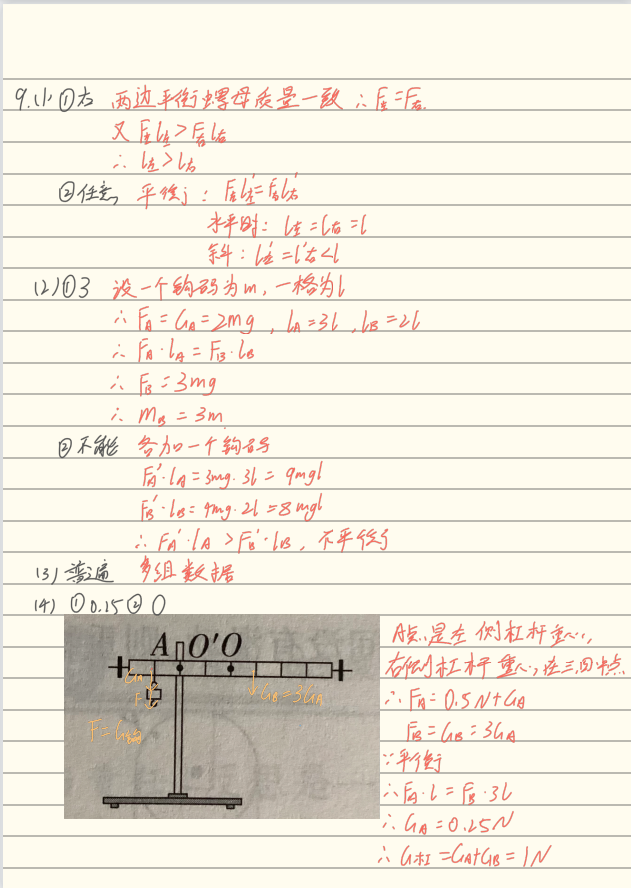 9.(1)①右 两边平衡螺母质量一致 ∴F左=F右
又F左l左>F右l右
∴ l左>l右
②任意 平衡j: F左l左'=F右l右'
水平时: l左=l右=l
斜: l左'=l'右<l
(2)①3 设一个钩码为m,一格为l
∴ FA=GA=2mg, lA=3l, lB=2l
∴ FA·lA=FB·lB
∴ FB=3mg
∴ mB=3m
②不能 各加一个钩码
FA'·lA=3mg·3l=9mgl
FB'·lB=4mg·2l=8mgl
∴ FA'·lA>FB'·lB, 不平衡
(3)普遍 多组数据
(4) ①0.15②0
A O'O
GA
F
GB=3GA
F=G钩
A点是左侧杠杆重心,
右侧杠杆重心在三四中点
∴FA=0.5N+GA
FB=GB=3GA
∵平衡
∴FA·l=FB·3l
∴GA=0.25N
∴G杠=GA+GB=1N